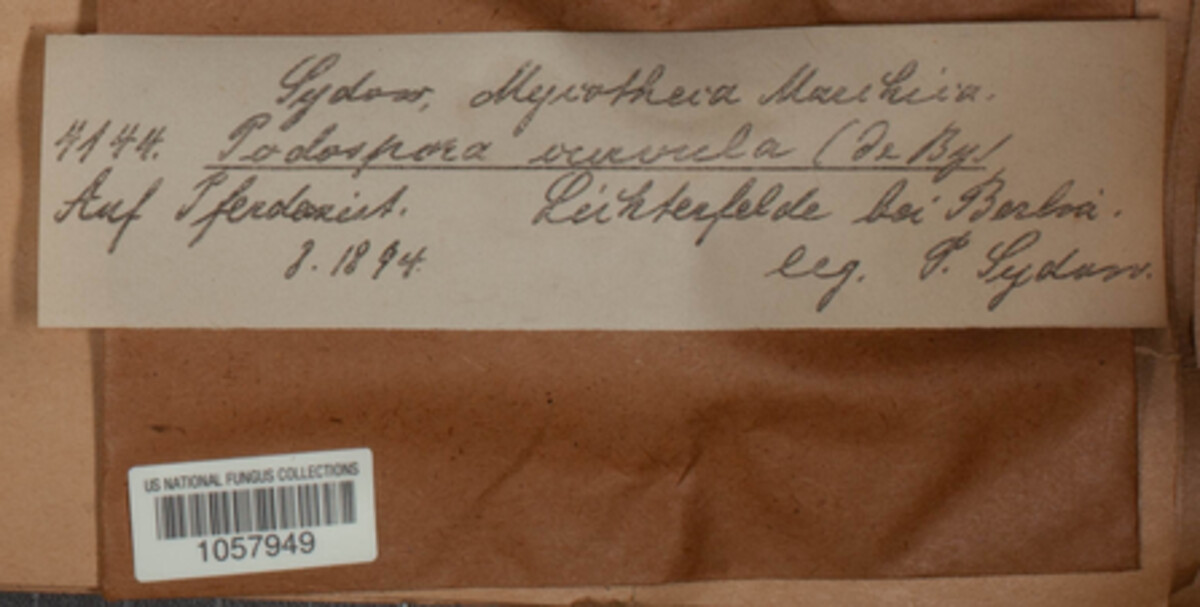 Sydow, Mycotheca Marchica.
4144. Podospora curvula (de By.)
Auf Pferdemist. Lichterfelde bei Berlin.
8. 1894. leg. P. Sydow.
US NATIONAL FUNGUS COLLECTIONS
1057949